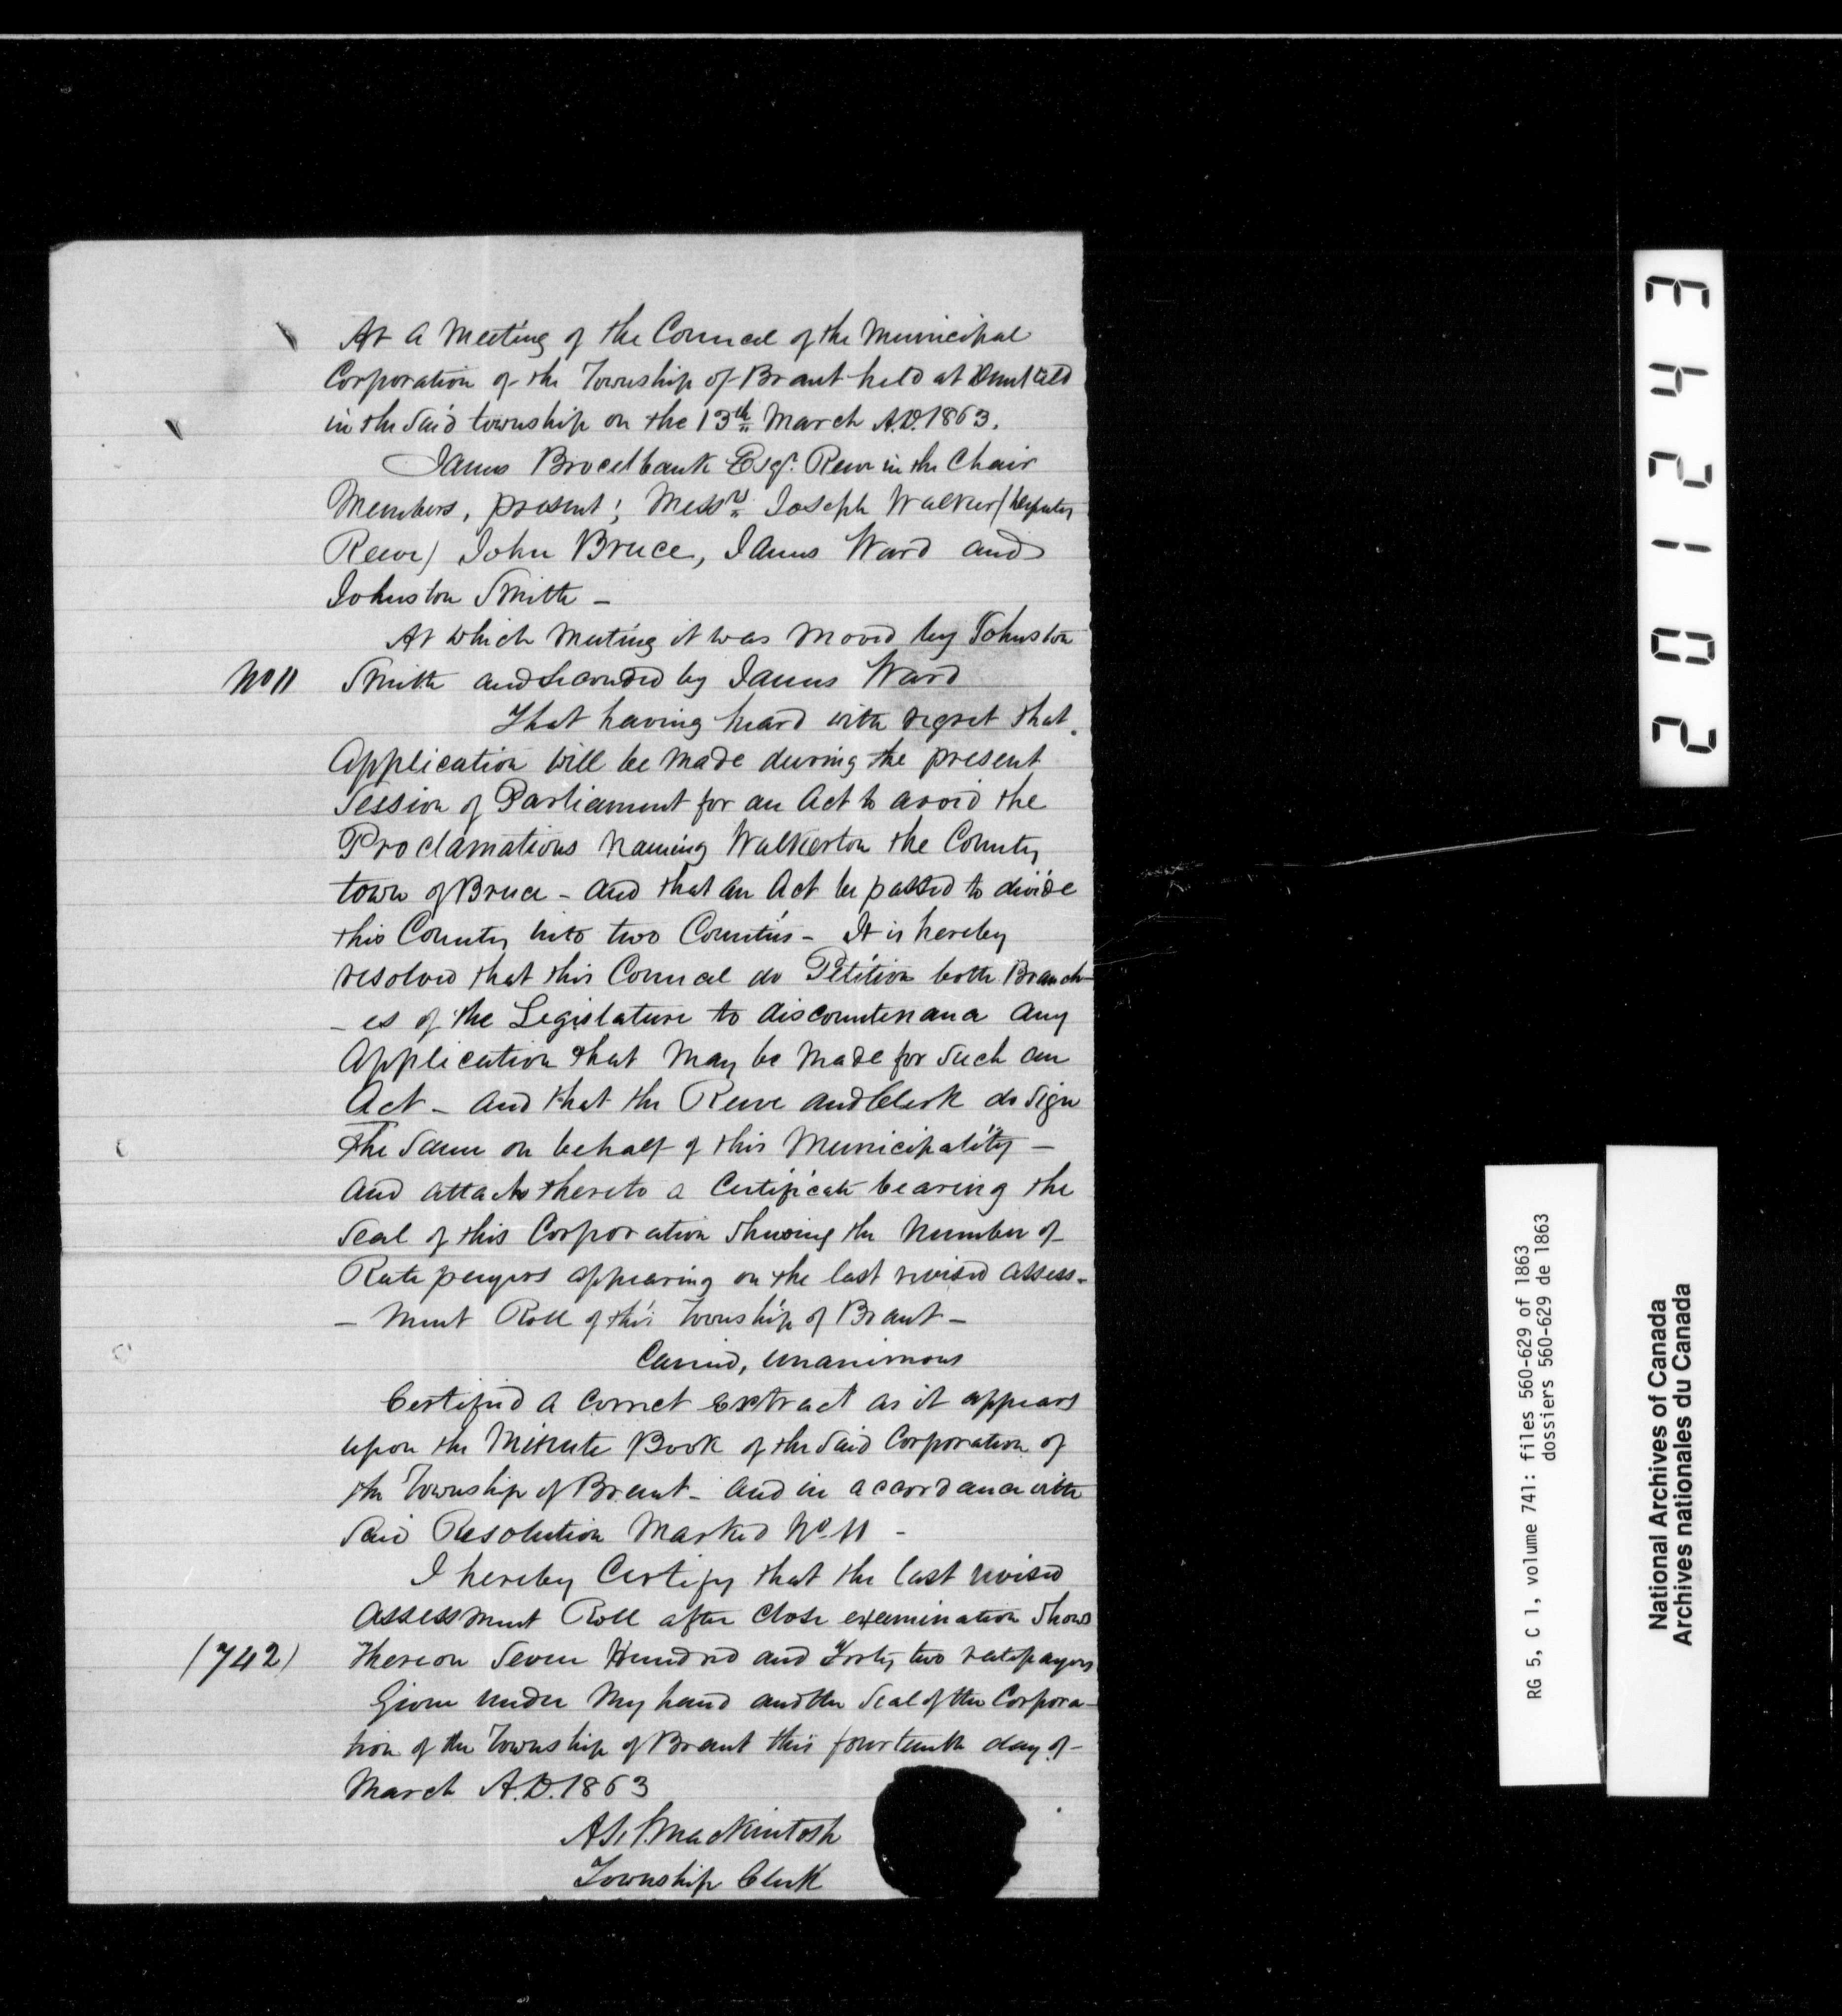 At a Meeting of the Council of the Municipal
Corporation of the Township of Brant held at
in the Said township on the 13th March A.D. 1863.
James Brocelbank Esqr. Reeve in the Chair
Members, present; Messrs Joseph Walker (Deputy
Reeve) John Bruce, James Ward and
Johnston Smith –
At which Meeting it was Moved by Johnston
No 11 Smith and Seconded by James Ward
That having heard with regret that
Application will be made during the present
Session of Parliament for an Act to avoid the
Proclamations Naming Walkerton the County
town of Bruce – and that an Act be passed to divide
this County into two Counties – It is hereby
resolved that this Council do Petition both Branch-
- es of the Legislature to discountenance any
Application that may be made for Such an
Act – and that the Reeve and Clerk do Sign
the Same on behalf of this Municipality –
and attach thereto a Certificate bearing the
Seal of this Corporation Shewing the Number of
Rate payers appearing on the last revised assess-
- ment Roll of this Township of Brant –
Carried, unanimous
Certified a Correct Extract as it appears
upon the Minute Book of the Said Corporation of
the Township of Brant – and in accordance with
Said Resolution Marked No. 11 –
I hereby Certify that the last revised
Assessment Roll after Close examination Shows
(742) thereon Seven Hundred and Forty two ratepayers
Given under My hand and the Seal of the Corpora-
tion of the Township of Brant this fourteenth day of
March A.D. 1863
Mackintosh
Township Clerk
201243
RG 5, C 1, volume 741: files 560-629 of 1863
dossiers 560-629 de 1863
National Archives of Canada
Archives nationales du Canada